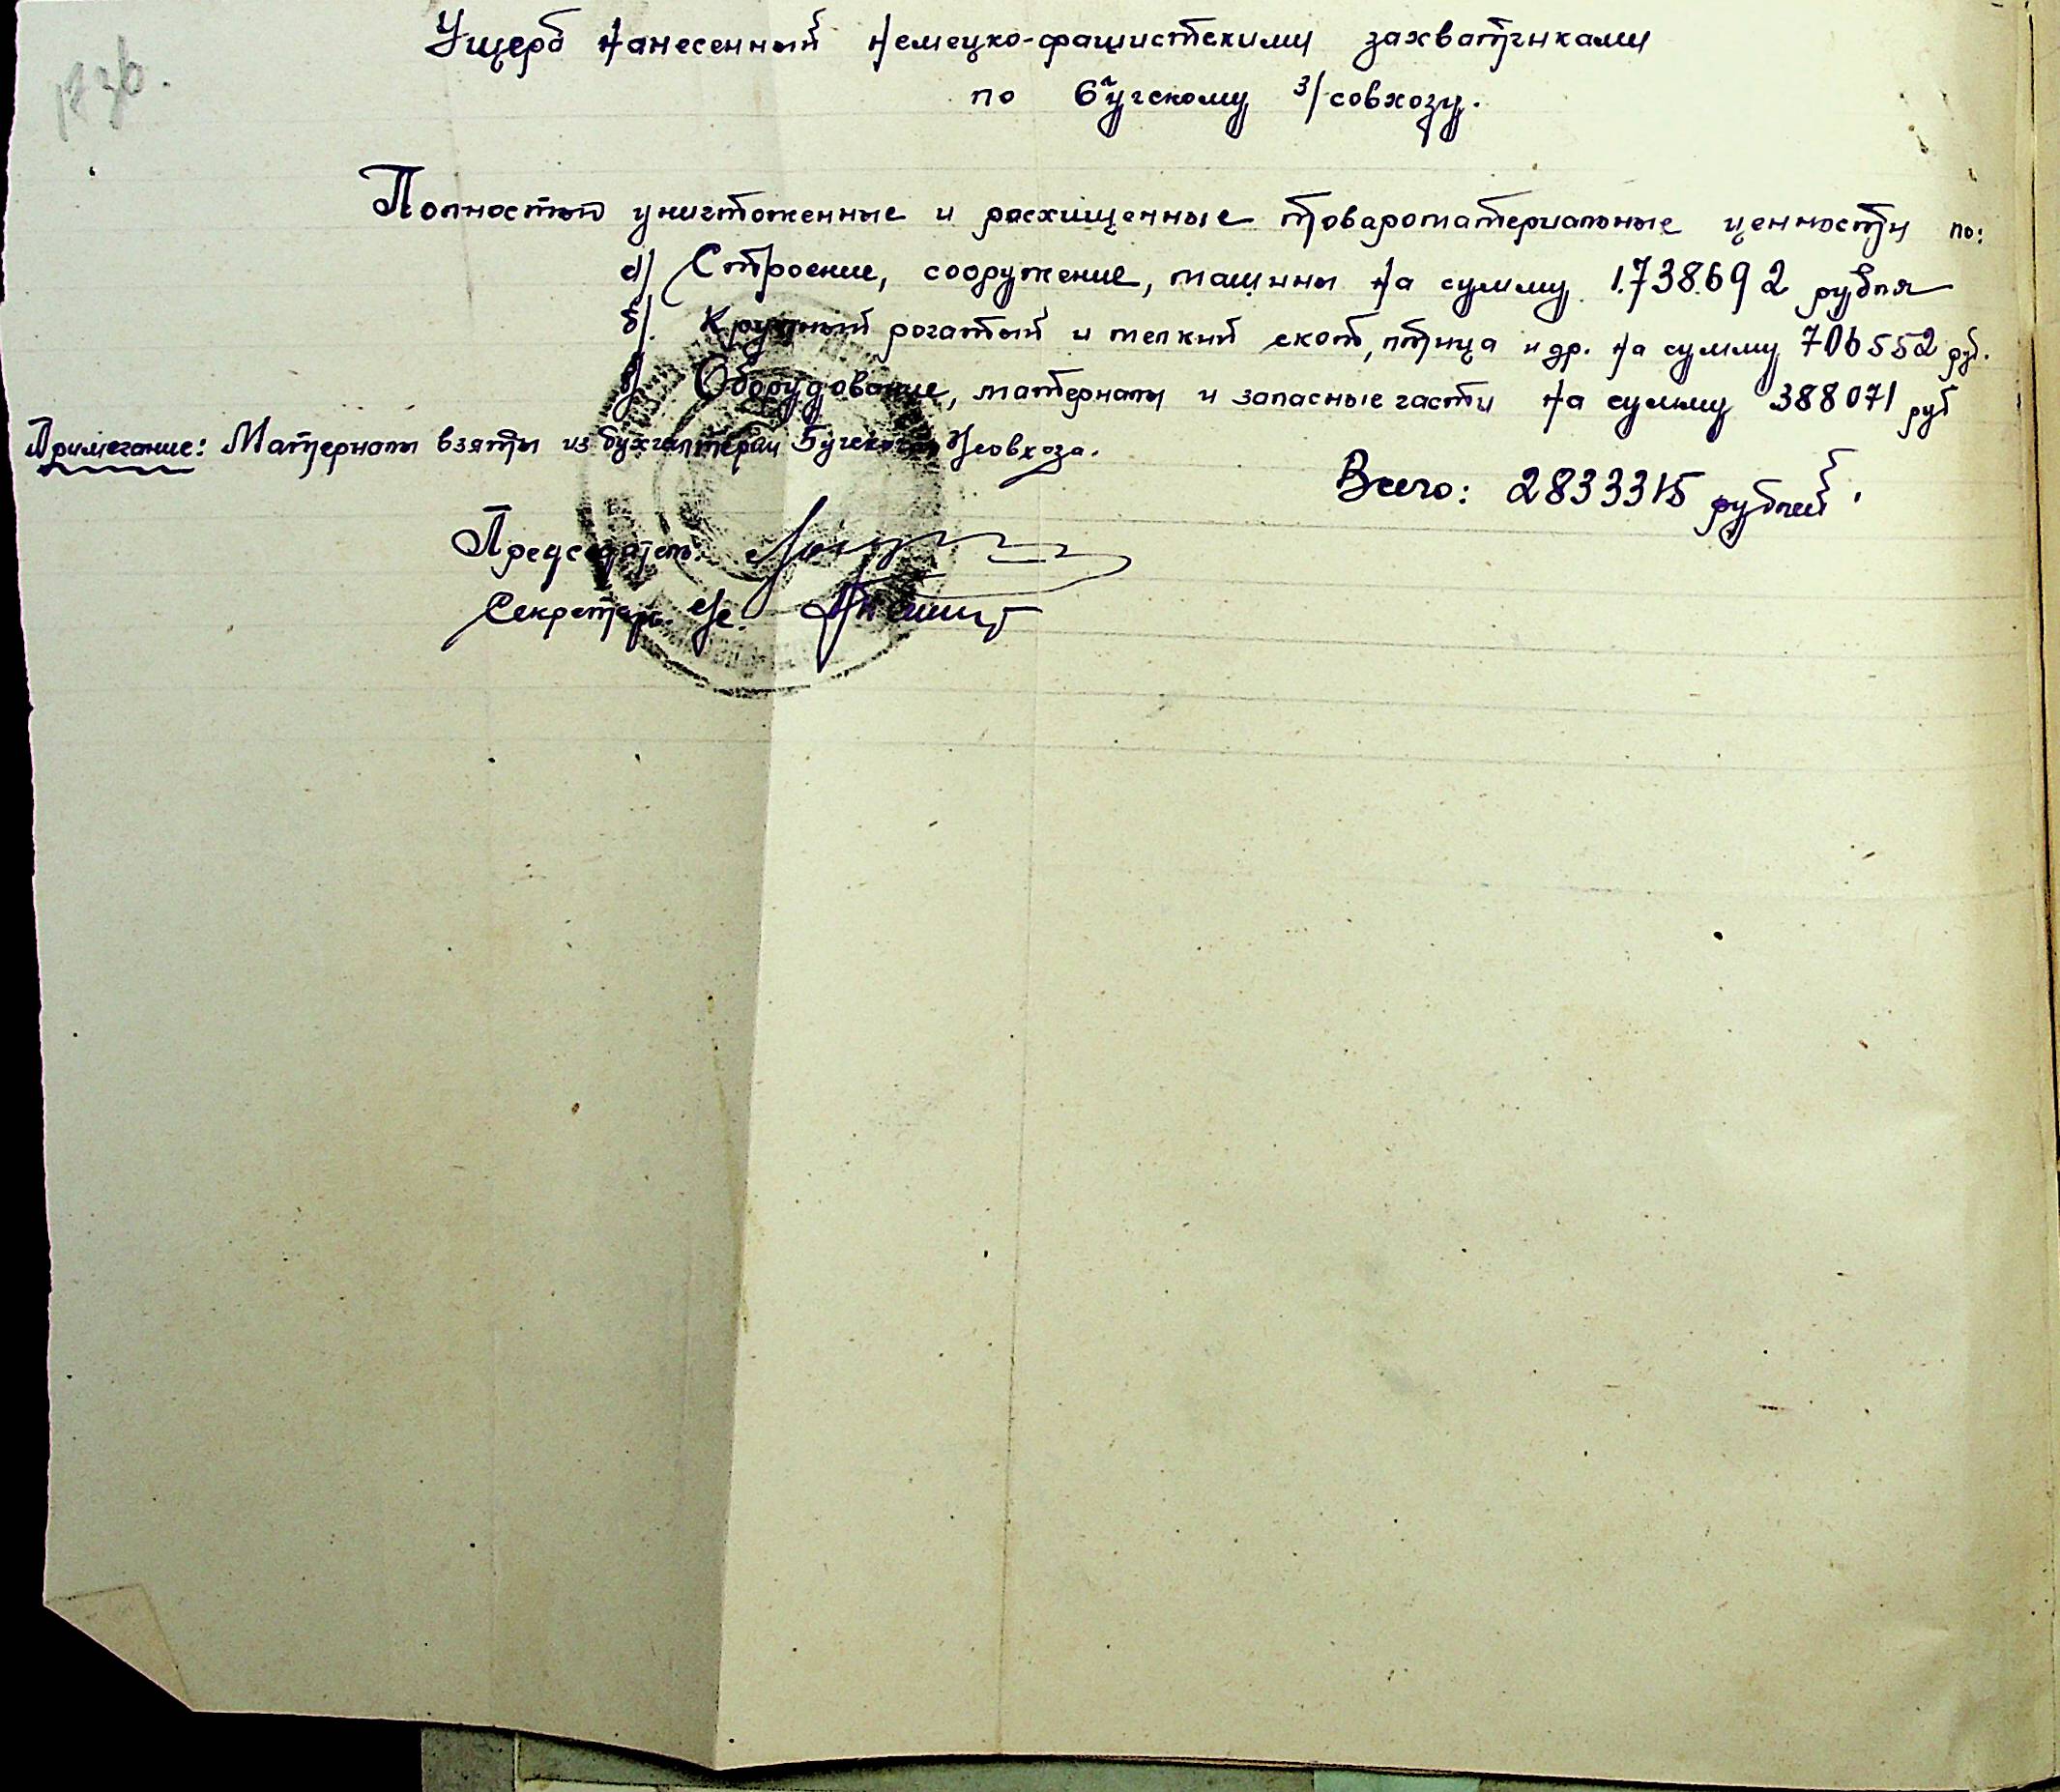 Ущерб нанесенный немецко-фашистскими захватчиками
по Бучскому з/совхозу.
Полностью уничтоженные и расхищенные товароматериальные ценности по:
а) Строение, сооружение, машины на сумму 1.738.692 рубля
б). Крупный рогатый и мелкий скот, птица и др. на сумму 706552 руб.
в) Оборудование, материалы и запасные части на сумму 388071 руб
Примечание: Материалы взяты из бухгалтерии Бучского з/совхоза.
Всего: 2833315 рублей.
Председатель:
Секретарь